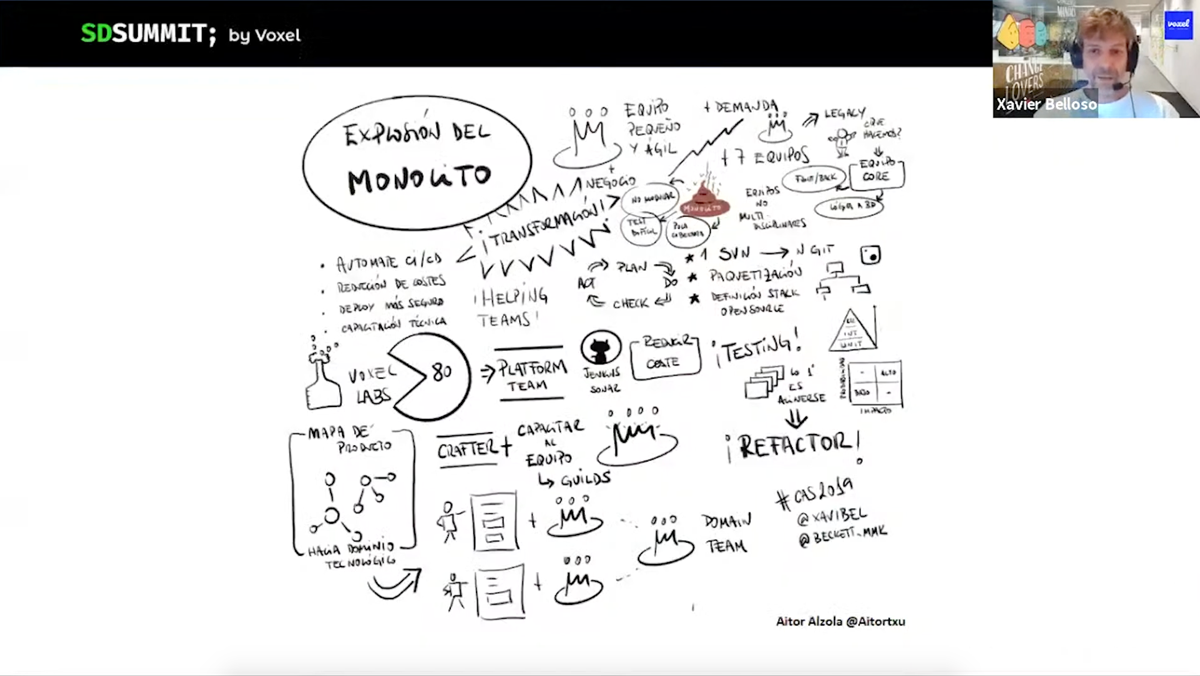 SDSUMMIT; by Voxel
voxel
CHANGE
LOVERS
Xavier Belloso
EXPLOSIÓN DEL
MONOLITO
EQUIPO
PEQUEÑO
Y ÁGIL
+
NEGOCIO
+ DEMANDA
+ 7 EQUIPOS
LEGACY
¿QUE
HACEMOS?
EQUIPO
CORE
FRONT/BACK
NO MODULAR
MONOLITO
TEST
DIFÍCIL
POCA
EQUIPOS
NO
MULTI-
DISCIPLINARES
¡TRANSFORMACIÓN!
• AUTOMATE CI/CD
• REDUCCIÓN DE COSTES
• DEPLOY MÁS SEGURO
• CAPACITACIÓN TÉCNICA
¡HELPING
TEAMS!
PLAN
DO
CHECK
ACT
1 SVN → N GIT
PAQUETIZACIÓN
DEFINICIÓN STACK
OPENSOURCE
VOXEL
LABS
80
PLATFORM
TEAM
JENKINS
SONAR
REDUCIR
COSTE
¡TESTING!
LO 1º
ES
ALINERSE
INT
UNIT
- ALTO
BAJO -
IMPACTO
¡REFACTOR!
MAPA DE
PRODUCTO
HACIA DOMINIO
TECNOLÓGICO
CRAFTER +
CAPACITAR
AL
EQUIPO
GUILDS
+
+
DOMAIN
TEAM
#CAS2019
@XAVIBEL
@BECKETT_MMK
Aitor Alzola @Aitortxu